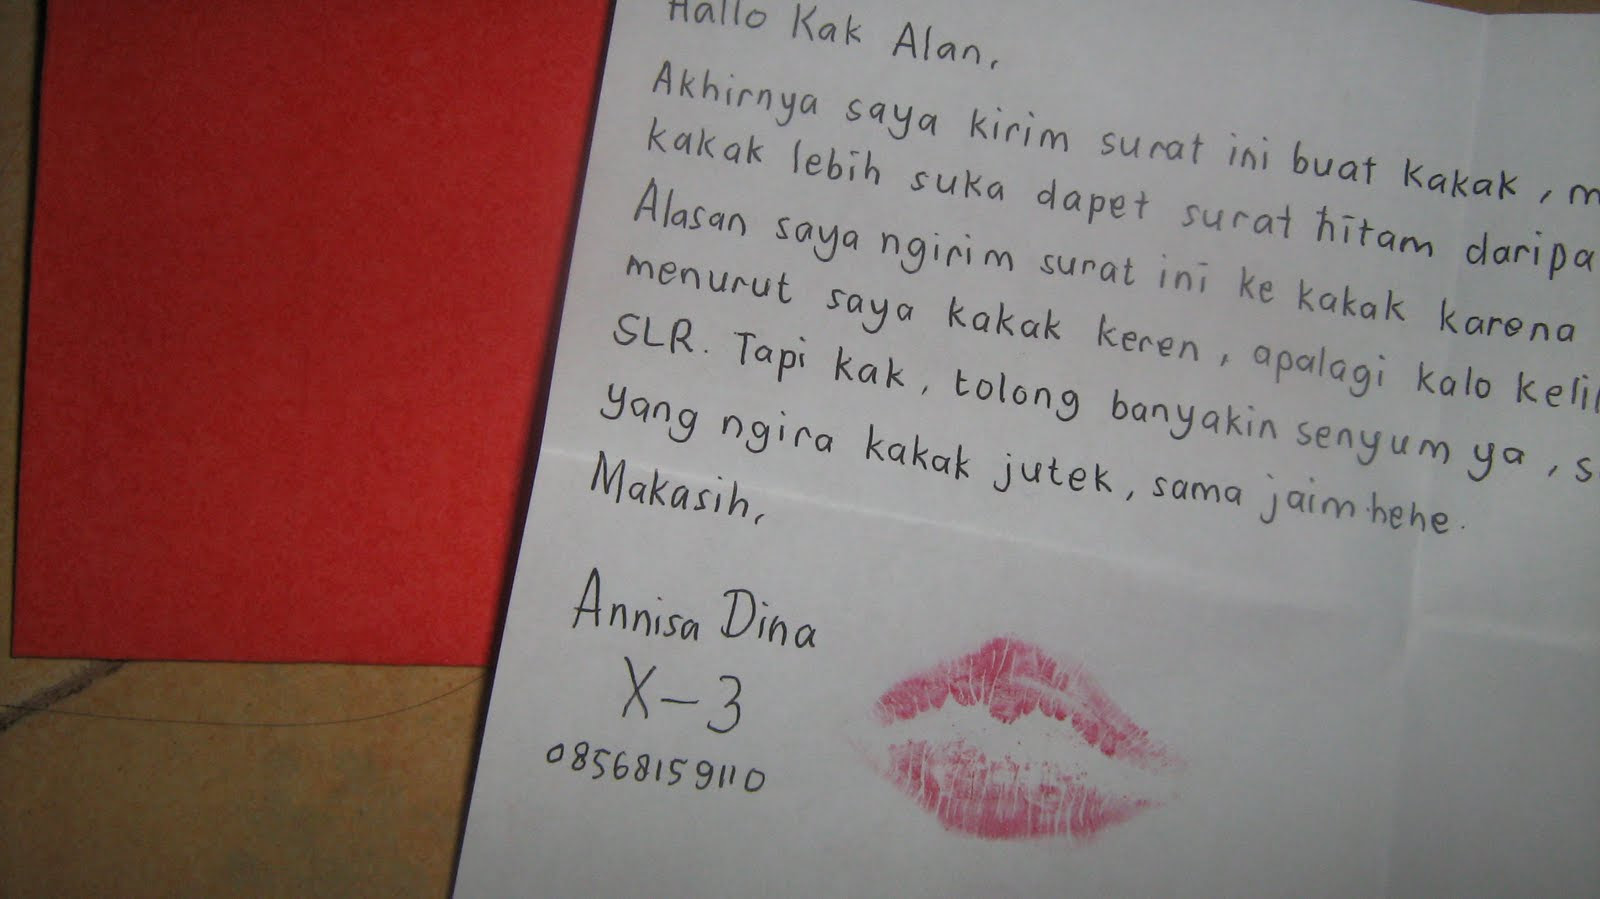 Hallo Kak Alan,
Akhirnya saya kirim surat ini buat kakak,
kakak lebih suka dapet surat hitam
Alasan saya ngirim surat ini ke kakak karena
menurut saya kakak keren, apalagi kalo
SLR. Tapi kak, tolong banyakin senyum ya,
yang ngira kakak jutek, sama jaim.hehe.
Makasih,
Annisa Dina
X-3
08568159110